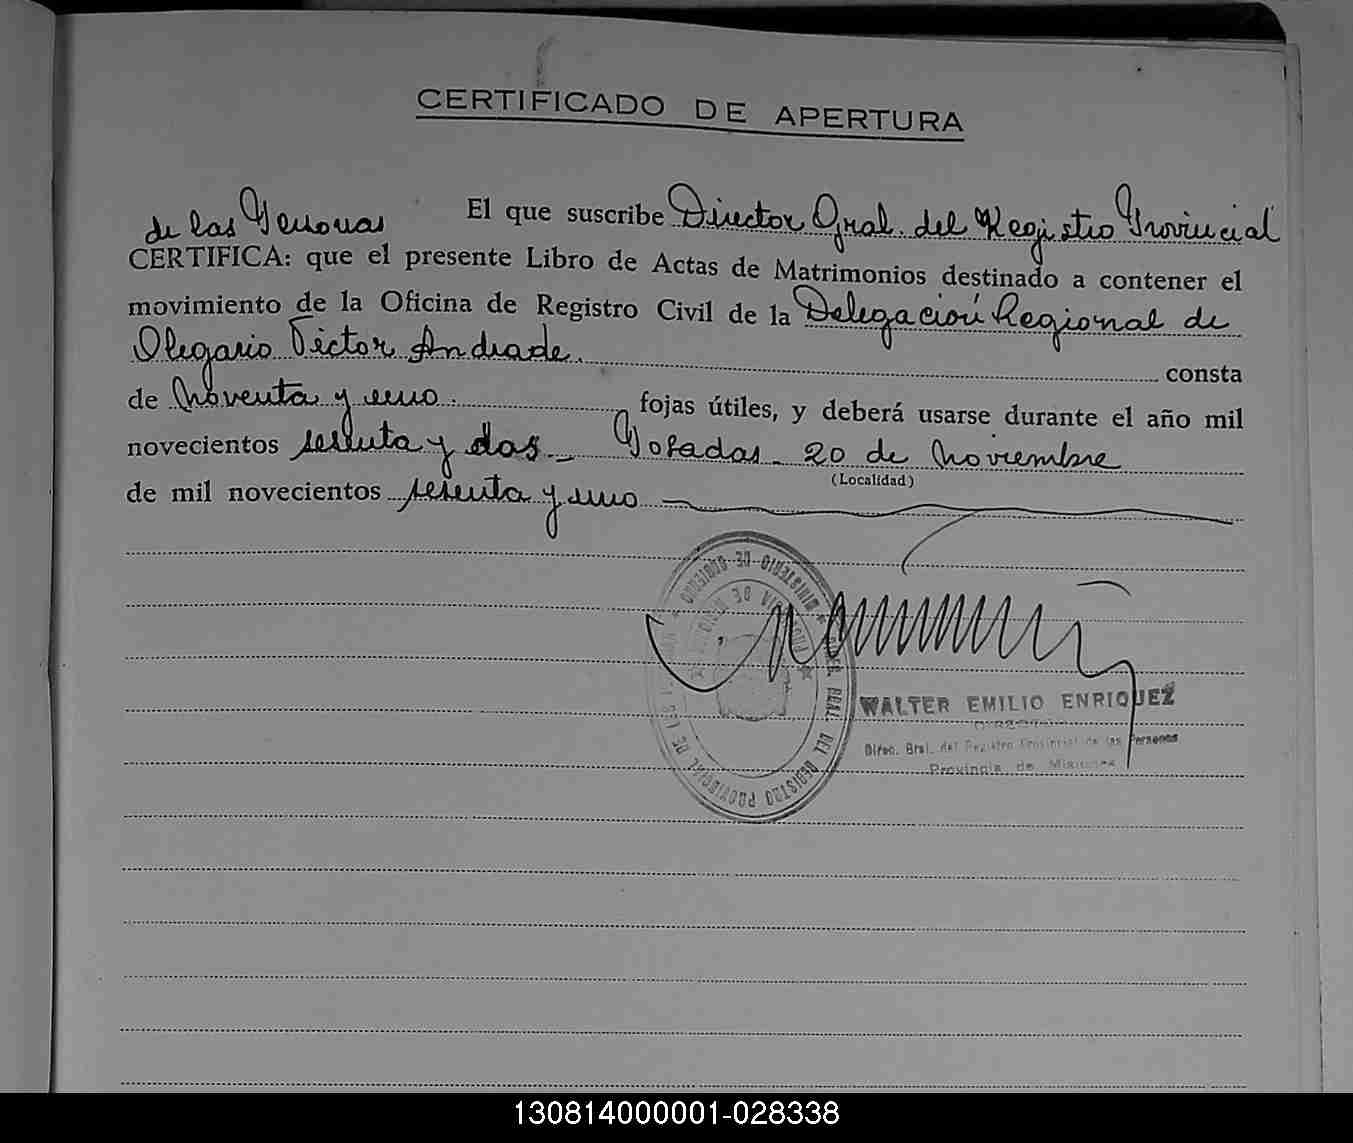 CERTIFICADO DE APERTURA
El que suscribe Director Gral. del Registro Provincial
de las Personas
CERTIFICA: que el presente Libro de Actas de Matrimonios destinado a contener el
movimiento de la Oficina de Registro Civil de la Delegación Regional de
Olegario Victor Andrade. consta
de Noventa y uno. fojas útiles, y deberá usarse durante el año mil
novecientos sesenta y dos - Posadas - 20 de Noviembre
(Localidad)
de mil novecientos sesenta y uno
MINISTERIO DE GOBIERNO
PROVINCIA DE MISIONES
GRAL. DEL REGISTRO PROVINCIAL DE LAS
WALTER EMILIO ENRIQUEZ
DIRECTOR
Direc. Gral. del Registro Provincial de las Personas
Provincia de Misiones
130814000001-028338